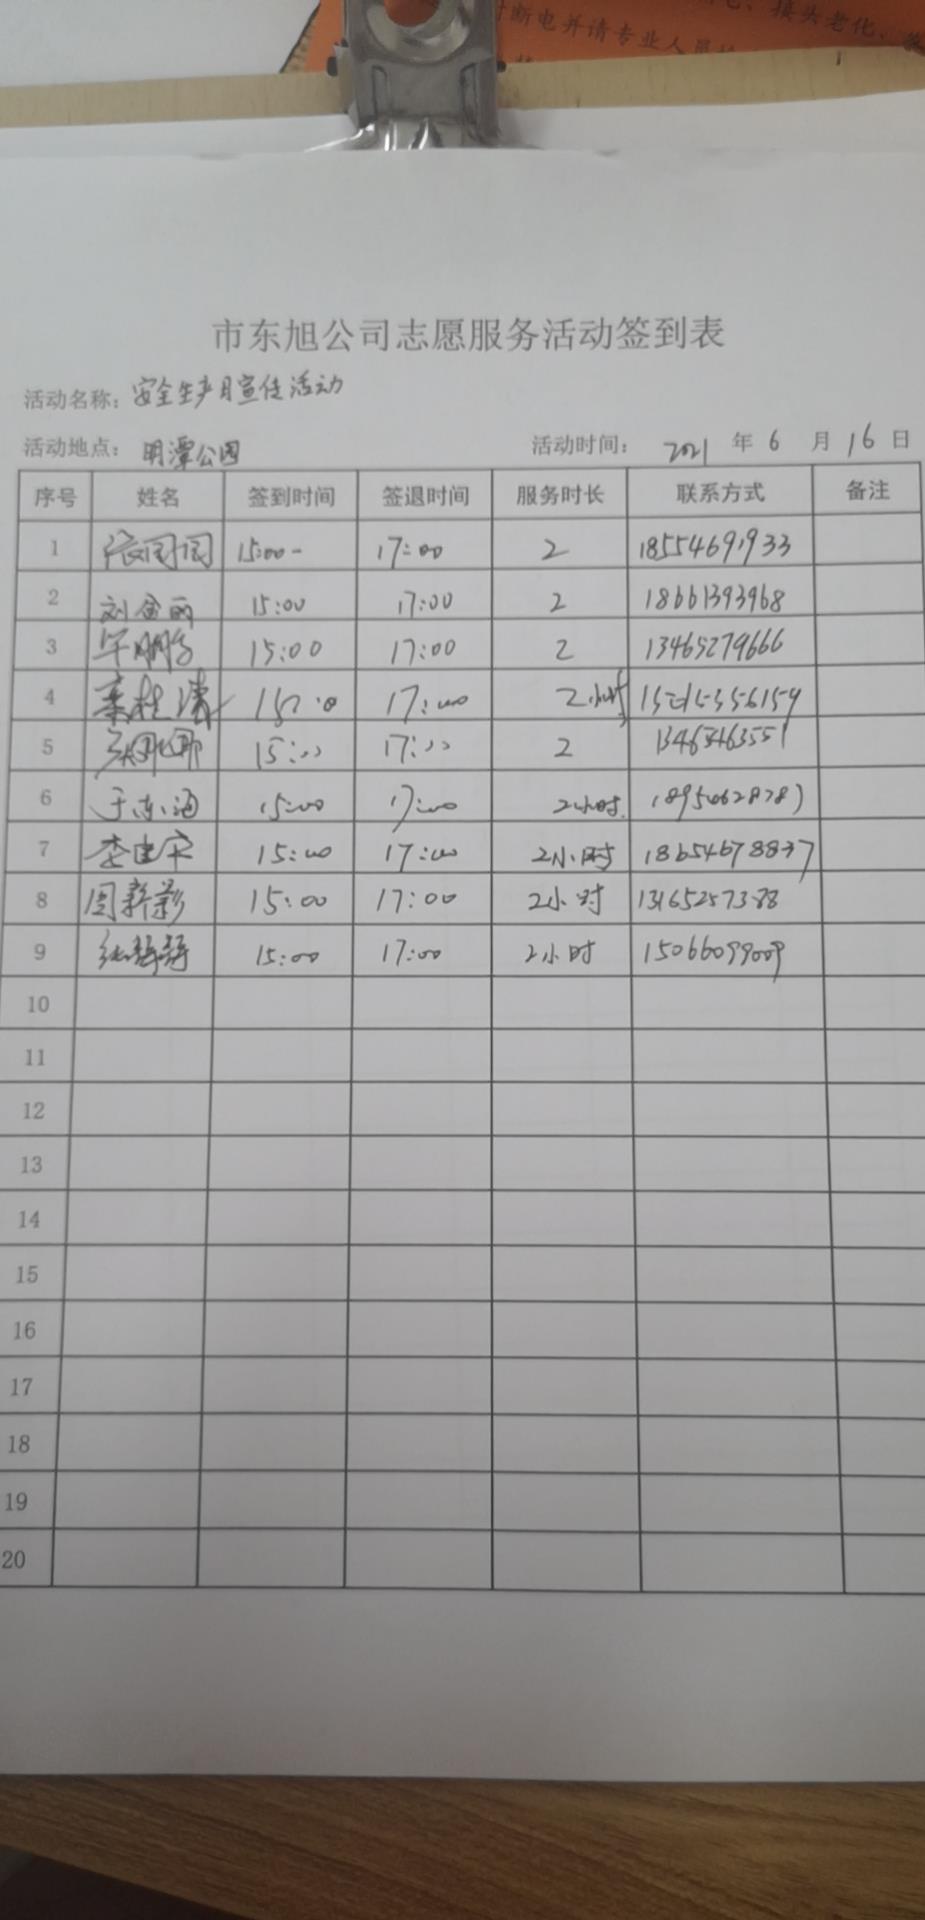 时断电并请专业人员
接头老化、
市东旭公司志愿服务活动签到表
活动名称：安全生产月宣传活动
活动地点：明潭公园 活动时间：2021 年 6 月 16 日
序号 姓名 签到时间 签退时间 服务时长 联系方式 备注
1 15:00 17:00 2 18554691933
2 刘金丽 15:00 17:00 2 18661393968
3 15:00 17:00 2 13465279666
4 17:00 2小时
5 15:00 17:00 2 13465463551
6 于东海 15:00 17:00 2小时
7 李建宋 15:00 17:00 2小时 18654678837
8 周新影 15:00 17:00 2小时 13165257388
9 张静静 15:00 17:00 2小时 15066099009
10
11
12
13
14
15
16
17
18
19
20